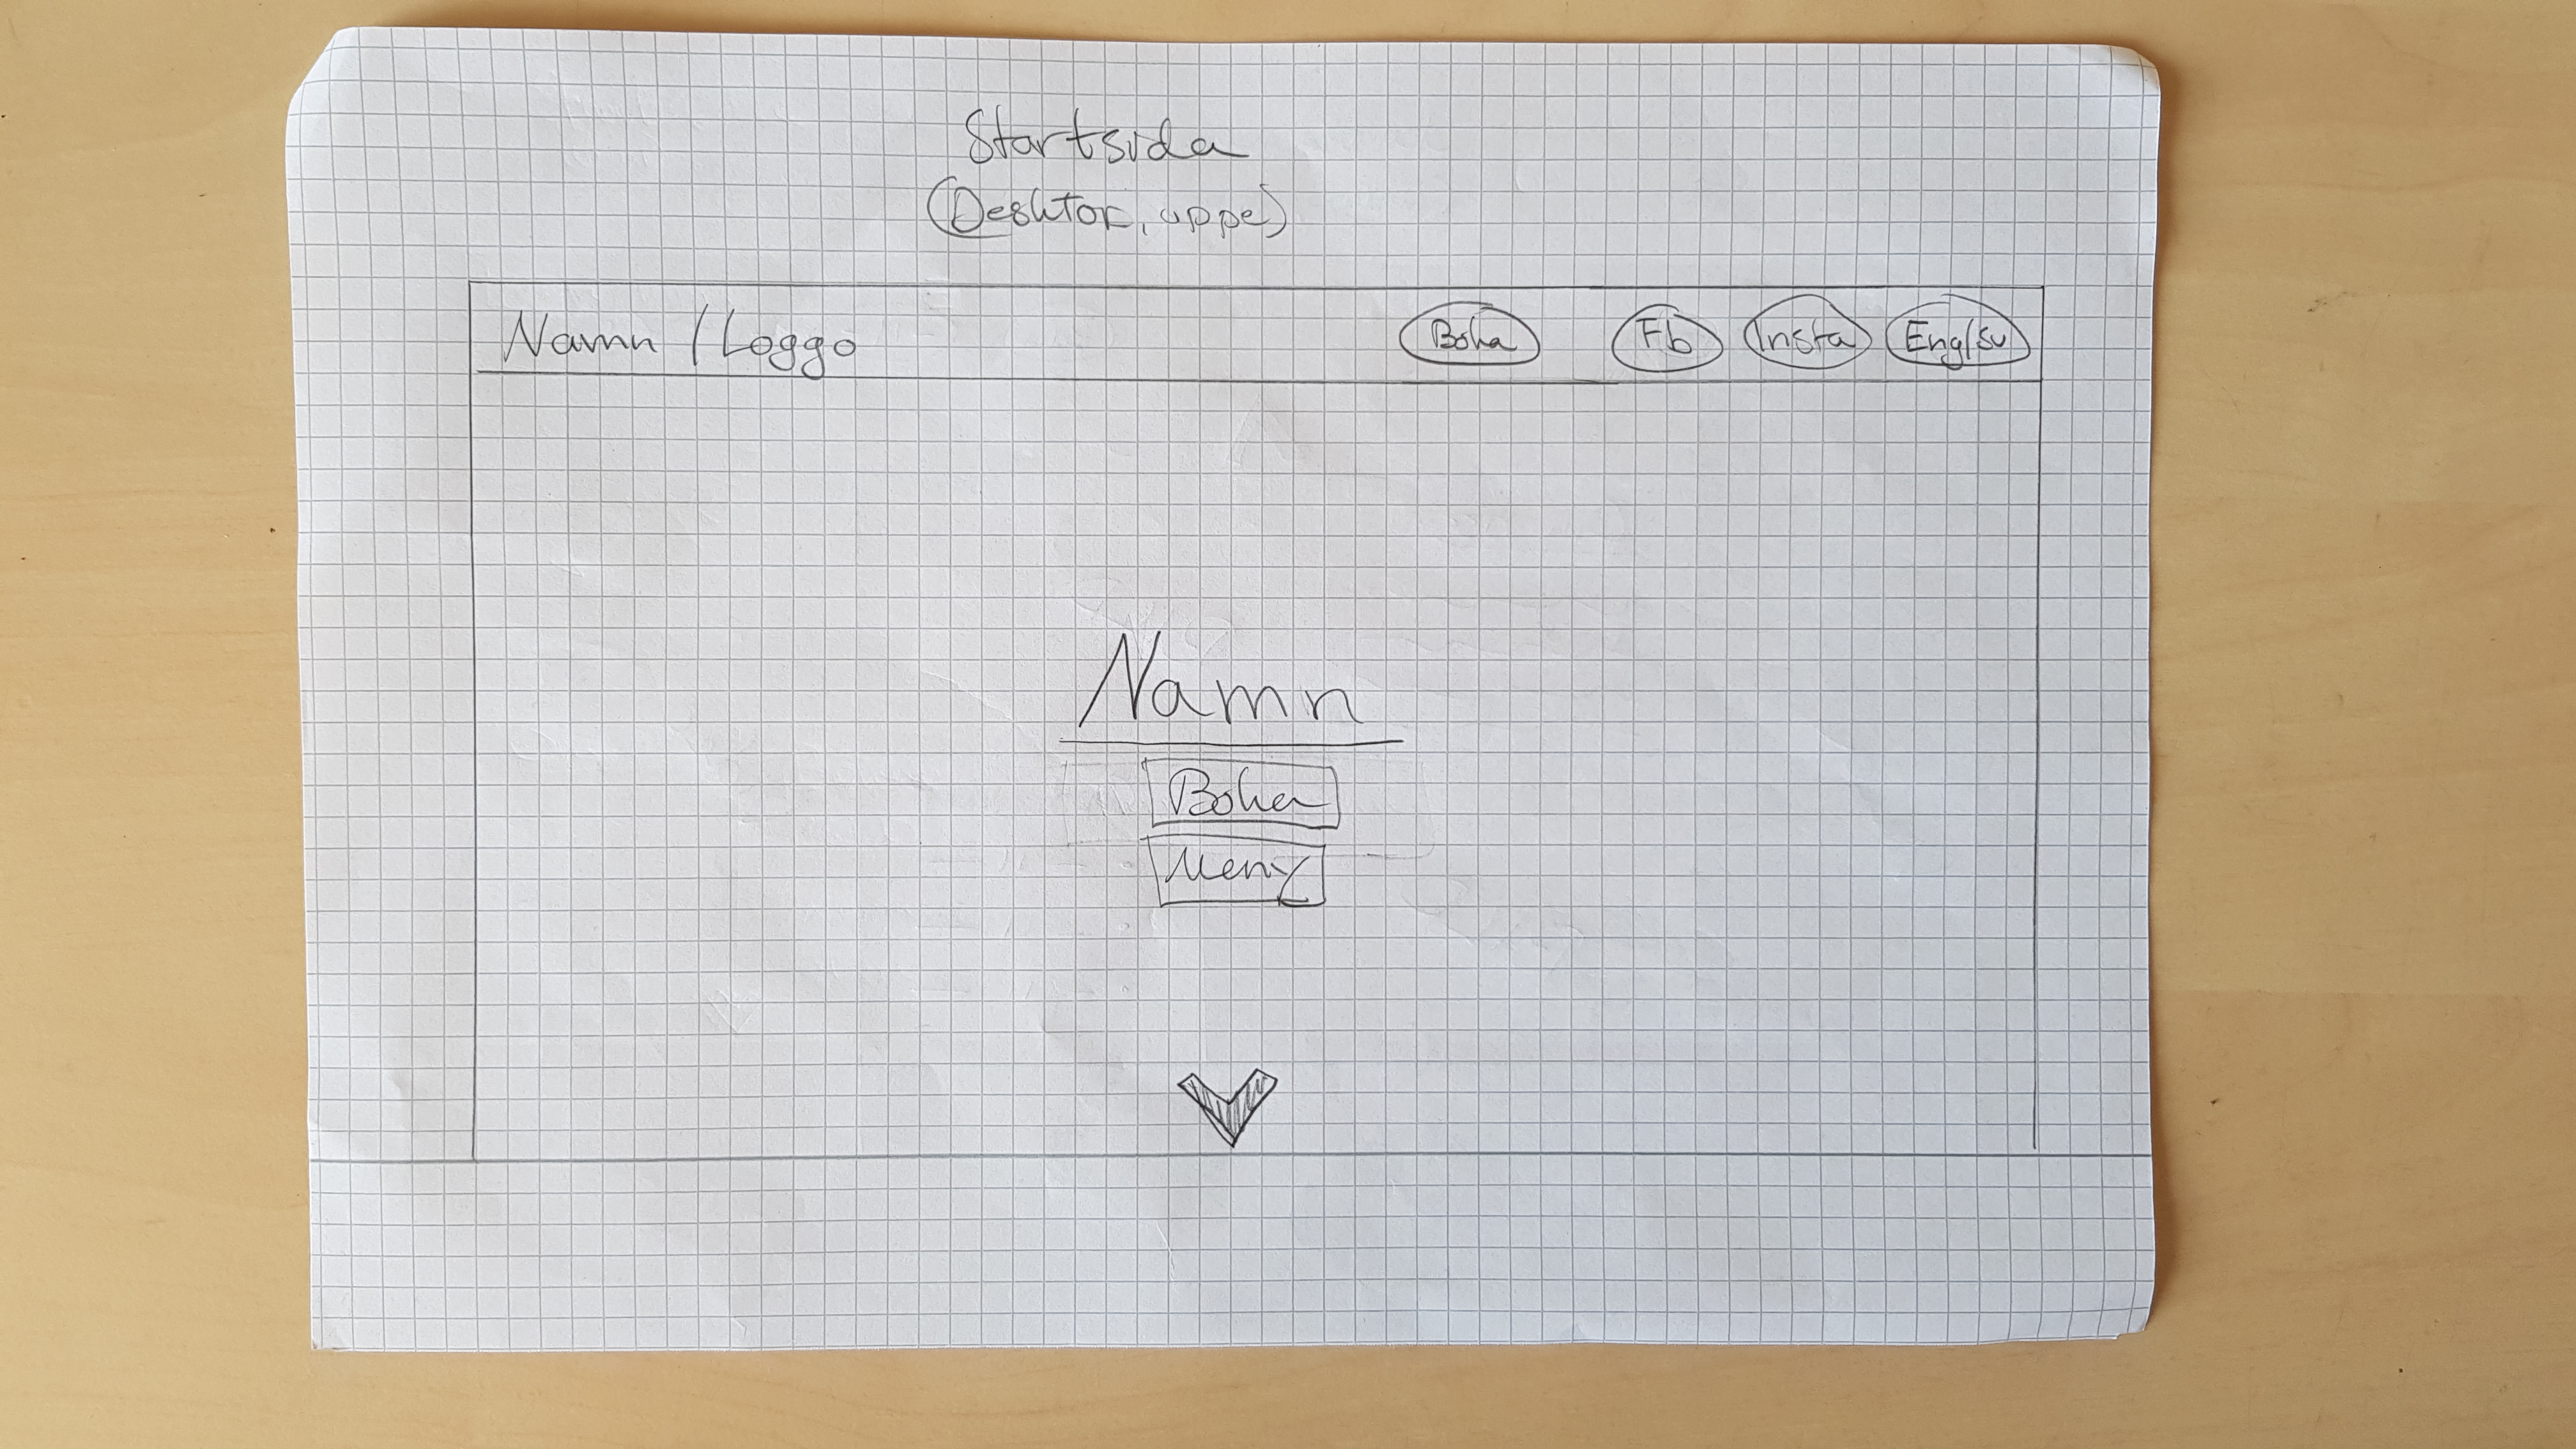 Startsida
(Desktop, uppe)
Namn / Loggo
Boka
Fb
Insta
Eng/su
Namn
Boka
Meny